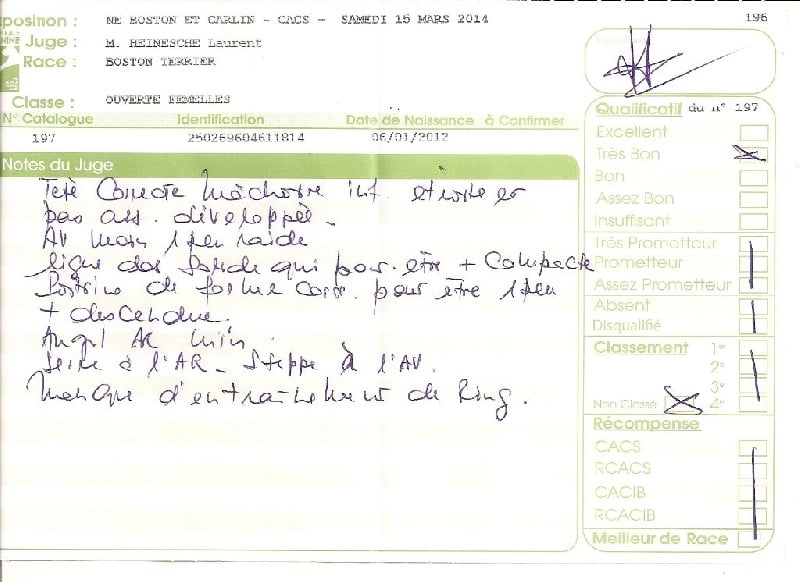 xposition : NE BOSTON ET CARLIN - CACS - SAMEDI 15 MARS 2014
196
NINE
Juge : M. HEINESCHE Laurent
Race : BOSTON TERRIER
Classe : OUVERTE FEMELLES
N° Catalogue Identification Date de Naissance à Confirmer
197 250269604611814 06/01/2012
Notes du Juge
Tete Correcte Mâchoire inf. etroite et
pas ass. développée.
AV main 1 peu raide
ligne dos solide qui pour. être + Compacte
Poitrine de forme corr. pour être 1 peu
+ descendue.
Angul AR min.
Serre à l'AR - Steppe à l'AV.
Manque d'entraînement de Ring.
Qualificatif du n° 197
Excellent
Très Bon
Bon
Assez Bon
Insuffisant
Très Prometteur
Prometteur
Assez Prometteur
Absent
Disqualifié
Classement 1er
2e
3e
Non Classé 4e
Récompense
CACS
RCACS
CACIB
RCACIB
Meilleur de Race